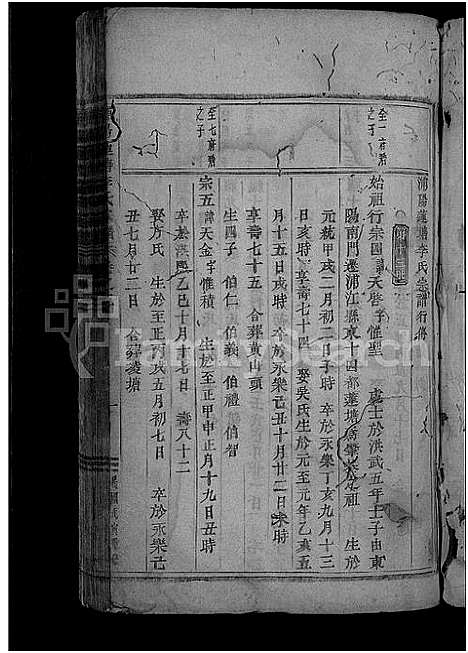 浦陽蓮塘李氏宗譜行傳
全一府君之子
始祖行宗四諱天啓字惟聖 處士於洪武五年壬子由東
陽南門遷浦江縣東十四都蓮塘居肇基始祖 生於
元統甲戌二月初二日子時 卒於永樂丁亥九月十三
日亥時 享壽七十四 娶吳氏生於元至元年乙亥五
月十五日戌時 卒於永樂己丑十月廿二日未時
享壽七十五 合葬黃山頭
生四子 伯仁 伯義 伯禮 伯智
至七府君之子
宗五諱天金字惟積 生於至正甲申正月十九日丑時
卒於洪熙乙巳十月十七日 壽八十二
娶方氏 生於至正丙戌五月初七日 卒於永樂己
丑七月廿二日 合葬麥塘
FamilySearch